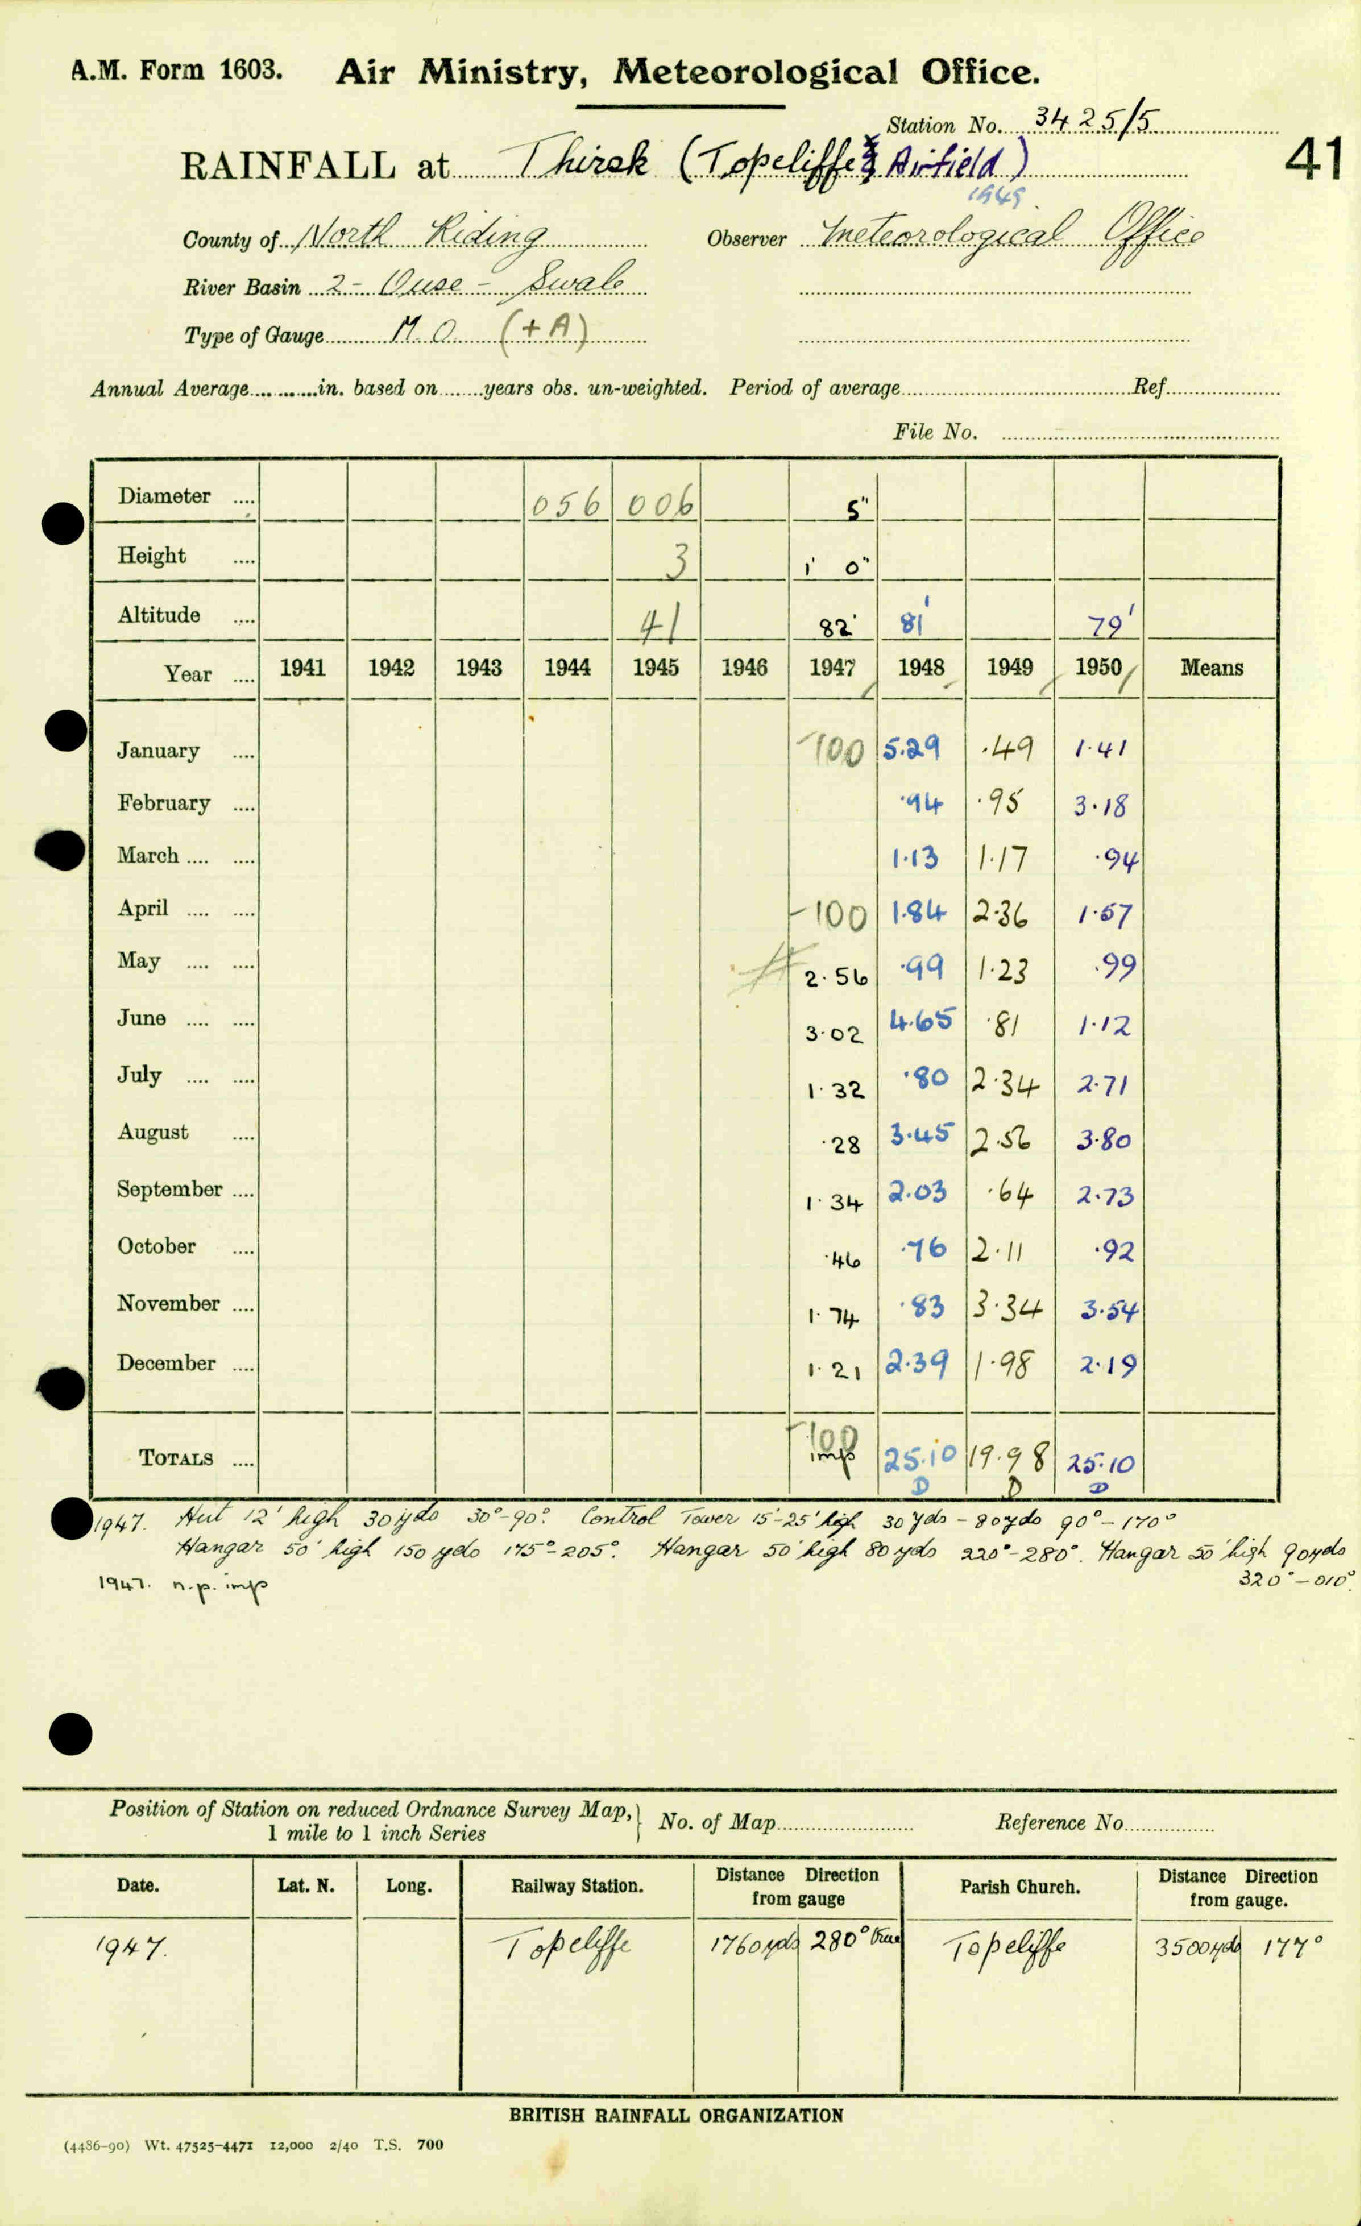 A.M. Form 1603. Air Ministry, Meteorological Office.
Station No. 3425/5
41
RAINFALL at Thirsk (Topcliffe Airfield)
1949.
County of North Riding Observer Meteorological Office
River Basin 2- Ouse - Swale
Type of Gauge M.O. (+A)
Annual Average in. based on years obs. un-weighted. Period of average Ref.
File No.
Diameter .... 056 006 5"
Height .... 3 1' 0"
Altitude .... 41 82' 81' 79'
Year .... 1941 1942 1943 1944 1945 1946 1947 1948 1949 1950 Means
January .... -100 5.29 .49 1.41
February .... .94 .95 3.18
March .... .... 1.13 1.17 .94
April .... .... -100 1.84 2.36 1.57
May .... .... # 2.56 .99 1.23 .99
June .... .... 3.02 4.65 .81 1.12
July .... .... 1.32 .80 2.34 2.71
August .... .28 3.45 2.56 3.80
September .... 1.34 2.03 .64 2.73
October .... .46 .76 2.11 .92
November .... 1.74 .83 3.34 3.54
December .... 1.21 2.39 1.98 2.19
-100
TOTALS .... imp 25.10 19.98 25.10
D D D
1947. Hut 12' high 30 yds 30°-90°. Control Tower 15'-25' high 30 yds - 80 yds 90°-170°
Hangar 50' high 150 yds 175°-205°. Hangar 50' high 80 yds 220°-280°. Hangar 50' high 90 yds
320°-010°.
1947. n.p. imp
Position of Station on reduced Ordnance Survey Map, } No. of Map Reference No.
1 mile to 1 inch Series
Date. Lat. N. Long. Railway Station. Distance Direction from gauge Parish Church. Distance Direction from gauge.
1947. Topcliffe 1760 yds 280° true Topcliffe 3500 yds 177°
BRITISH RAINFALL ORGANIZATION
(4486-90) Wt. 47525-4471 12,000 2/40 T.S. 700